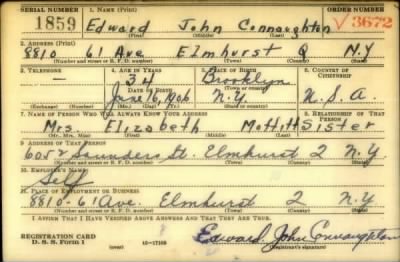 SERIAL NUMBER 1. NAME (Print) ORDER NUMBER
1859 Edward John Connaughton V3672
2. ADDRESS (Print)
8810 61 Ave Elmhurst Q N.Y
(Number and street or R. F. D. number) (Town) (County) (State)
3. TELEPHONE 4. AGE IN YEARS 5. PLACE OF BIRTH 6. COUNTRY OF CITIZENSHIP
— 34 Brooklyn
DATE OF BIRTH (Town or county)
June 16, 1906 N.Y. U.S.A.
(Exchange) (Number) (Mo.) (Day) (Yr.) (State or country)
7. NAME OF PERSON WHO WILL ALWAYS KNOW YOUR ADDRESS 8. RELATIONSHIP OF THAT PERSON
Mrs Elizabeth Moffitt Sister
(Mr., Mrs., Miss) (First) (Middle) (Last)
9. ADDRESS OF THAT PERSON
6052 Saunders St. Elmhurst Q N.Y
(Number and street or R. F. D. number) (Town) (County) (State)
10. EMPLOYER'S NAME
Self
11. PLACE OF EMPLOYMENT OR BUSINESS
8810-61 Ave. Elmhurst Q N.Y
(Number and street or R. F. D. number) (Town) (County) (State)
I AFFIRM THAT I HAVE VERIFIED ABOVE ANSWERS AND THAT THEY ARE TRUE.
REGISTRATION CARD Edward John Connaughton
D. S. S. Form 1 (over) 16-17105 (Registrant's signature)